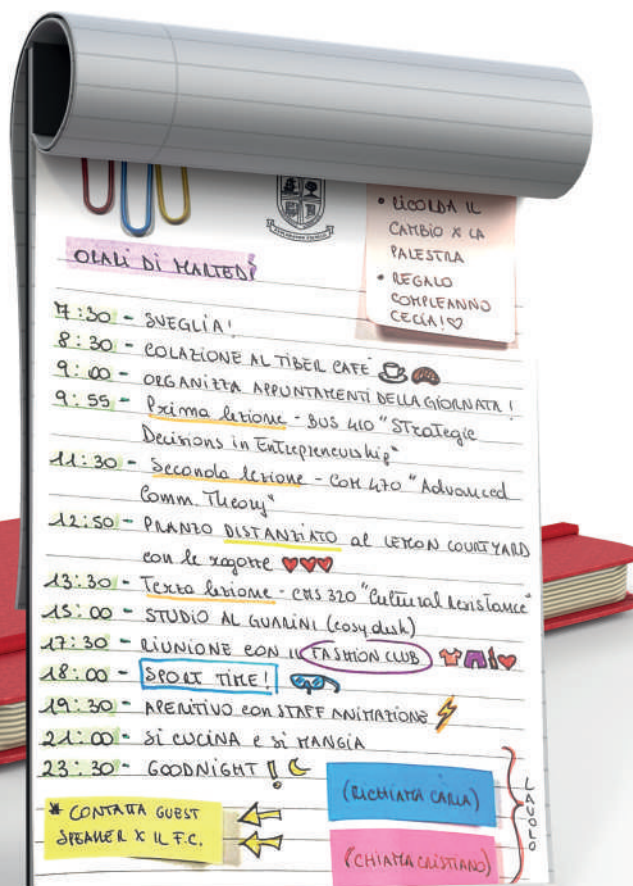 • RICORDA IL
CAMBIO X LA
PALESTRA
• REGALO
COMPLEANNO
CECIA!♡
ORARI DI MARTEDÌ
7:30 - SVEGLIA!
8:30 - COLAZIONE AL TIBER CAFÉ
9:00 - ORGANIZZA APPUNTAMENTI DELLA GIORNATA!
9:55 - Prima lezione - BUS 410 "Strategic
Decisions in Entrepreneurship"
11:30 - Seconda lezione - COM 470 "Advanced
Comm. Theory"
12:50 - PRANZO DISTANZIATO al LEMON COURTYARD
con le ragazze ♥♥♥
13:30 - Terza lezione - CMS 320 "Cultural Resistance"
15:00 - STUDIO AL GUARINI (cosy desk)
17:30 - RIUNIONE CON IL FASHION CLUB
18:00 - SPORT TIME!
19:30 - APERITIVO con STAFF ANIMAZIONE
21:00 - SI CUCINA e SI MANGIA
23:30 - GOODNIGHT!
* CONTATTA GUEST
SPEAKER X IL F.C.
(RICHIAMA CARLA)
(CHIAMA CRISTIANO)
LAVORO